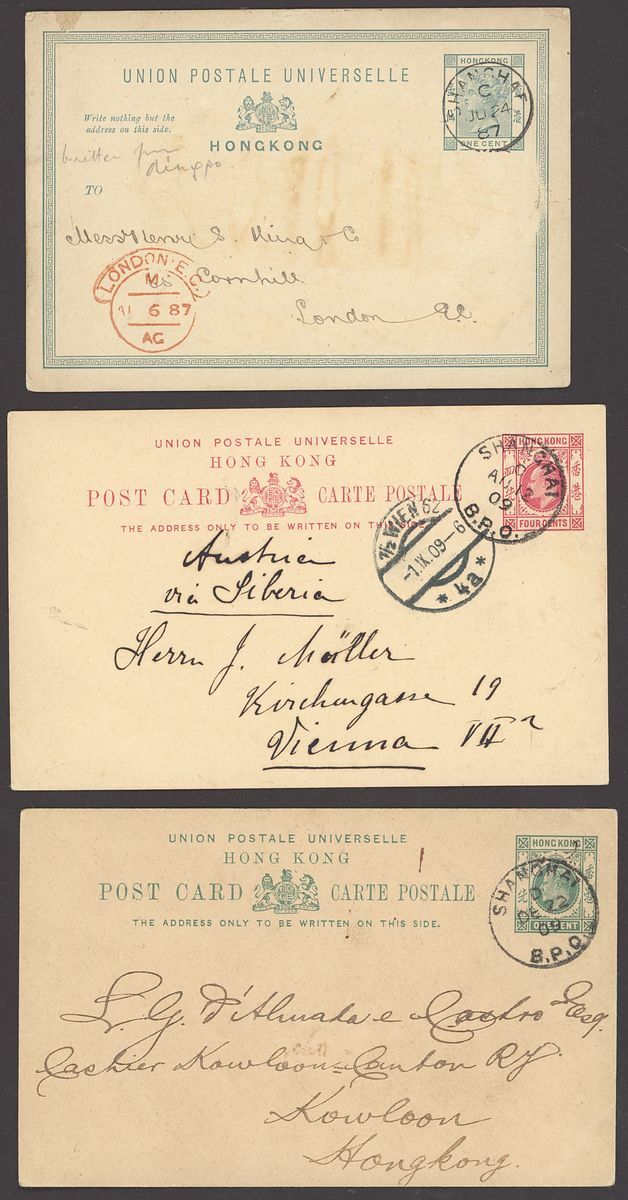 UNION POSTALE UNIVERSELLE
Write nothing but the
address on this side.
HONGKONG
HONGKONG
ONE CENT
SHANGHAI
C
JU 24
87
written from
Ningpo.
TO
Mess Henry S. King & Co
65 Cornhill
London E.C.
LONDON·E.C.
M
6 87
AG
UNION POSTALE UNIVERSELLE
HONG KONG
POST CARD CARTE POSTALE
THE ADDRESS ONLY TO BE WRITTEN ON THIS SIDE
HONG KONG
香港
FOUR CENTS
SHANGHAI
AU 12
09
B.P.O.
7/2 WIEN 62
-1.IX.09-6
* 4a *
Austria
via Siberia
Herrn J. Müller
Kirchengasse 19
Vienna VII
UNION POSTALE UNIVERSELLE
HONG KONG
POST CARD CARTE POSTALE
THE ADDRESS ONLY TO BE WRITTEN ON THIS SIDE.
HONG KONG
ONE CENT
SHANGHAI
D
DE 22
09
B.P.O.
L. G. d'Almada e Castro Esq.
Cashier Kowloon=Canton Ry
Kowloon
Hongkong.